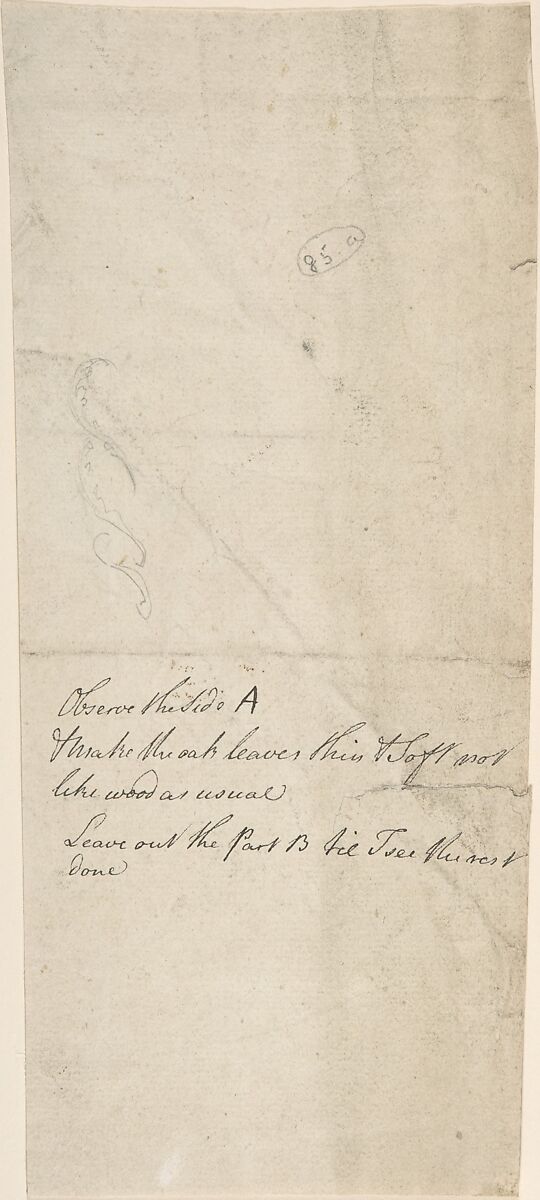 85. a
Observe the Side A
& make the oak leaves thin & Soft not
like wood as usual
Leave out the Part B till I see the rest
done